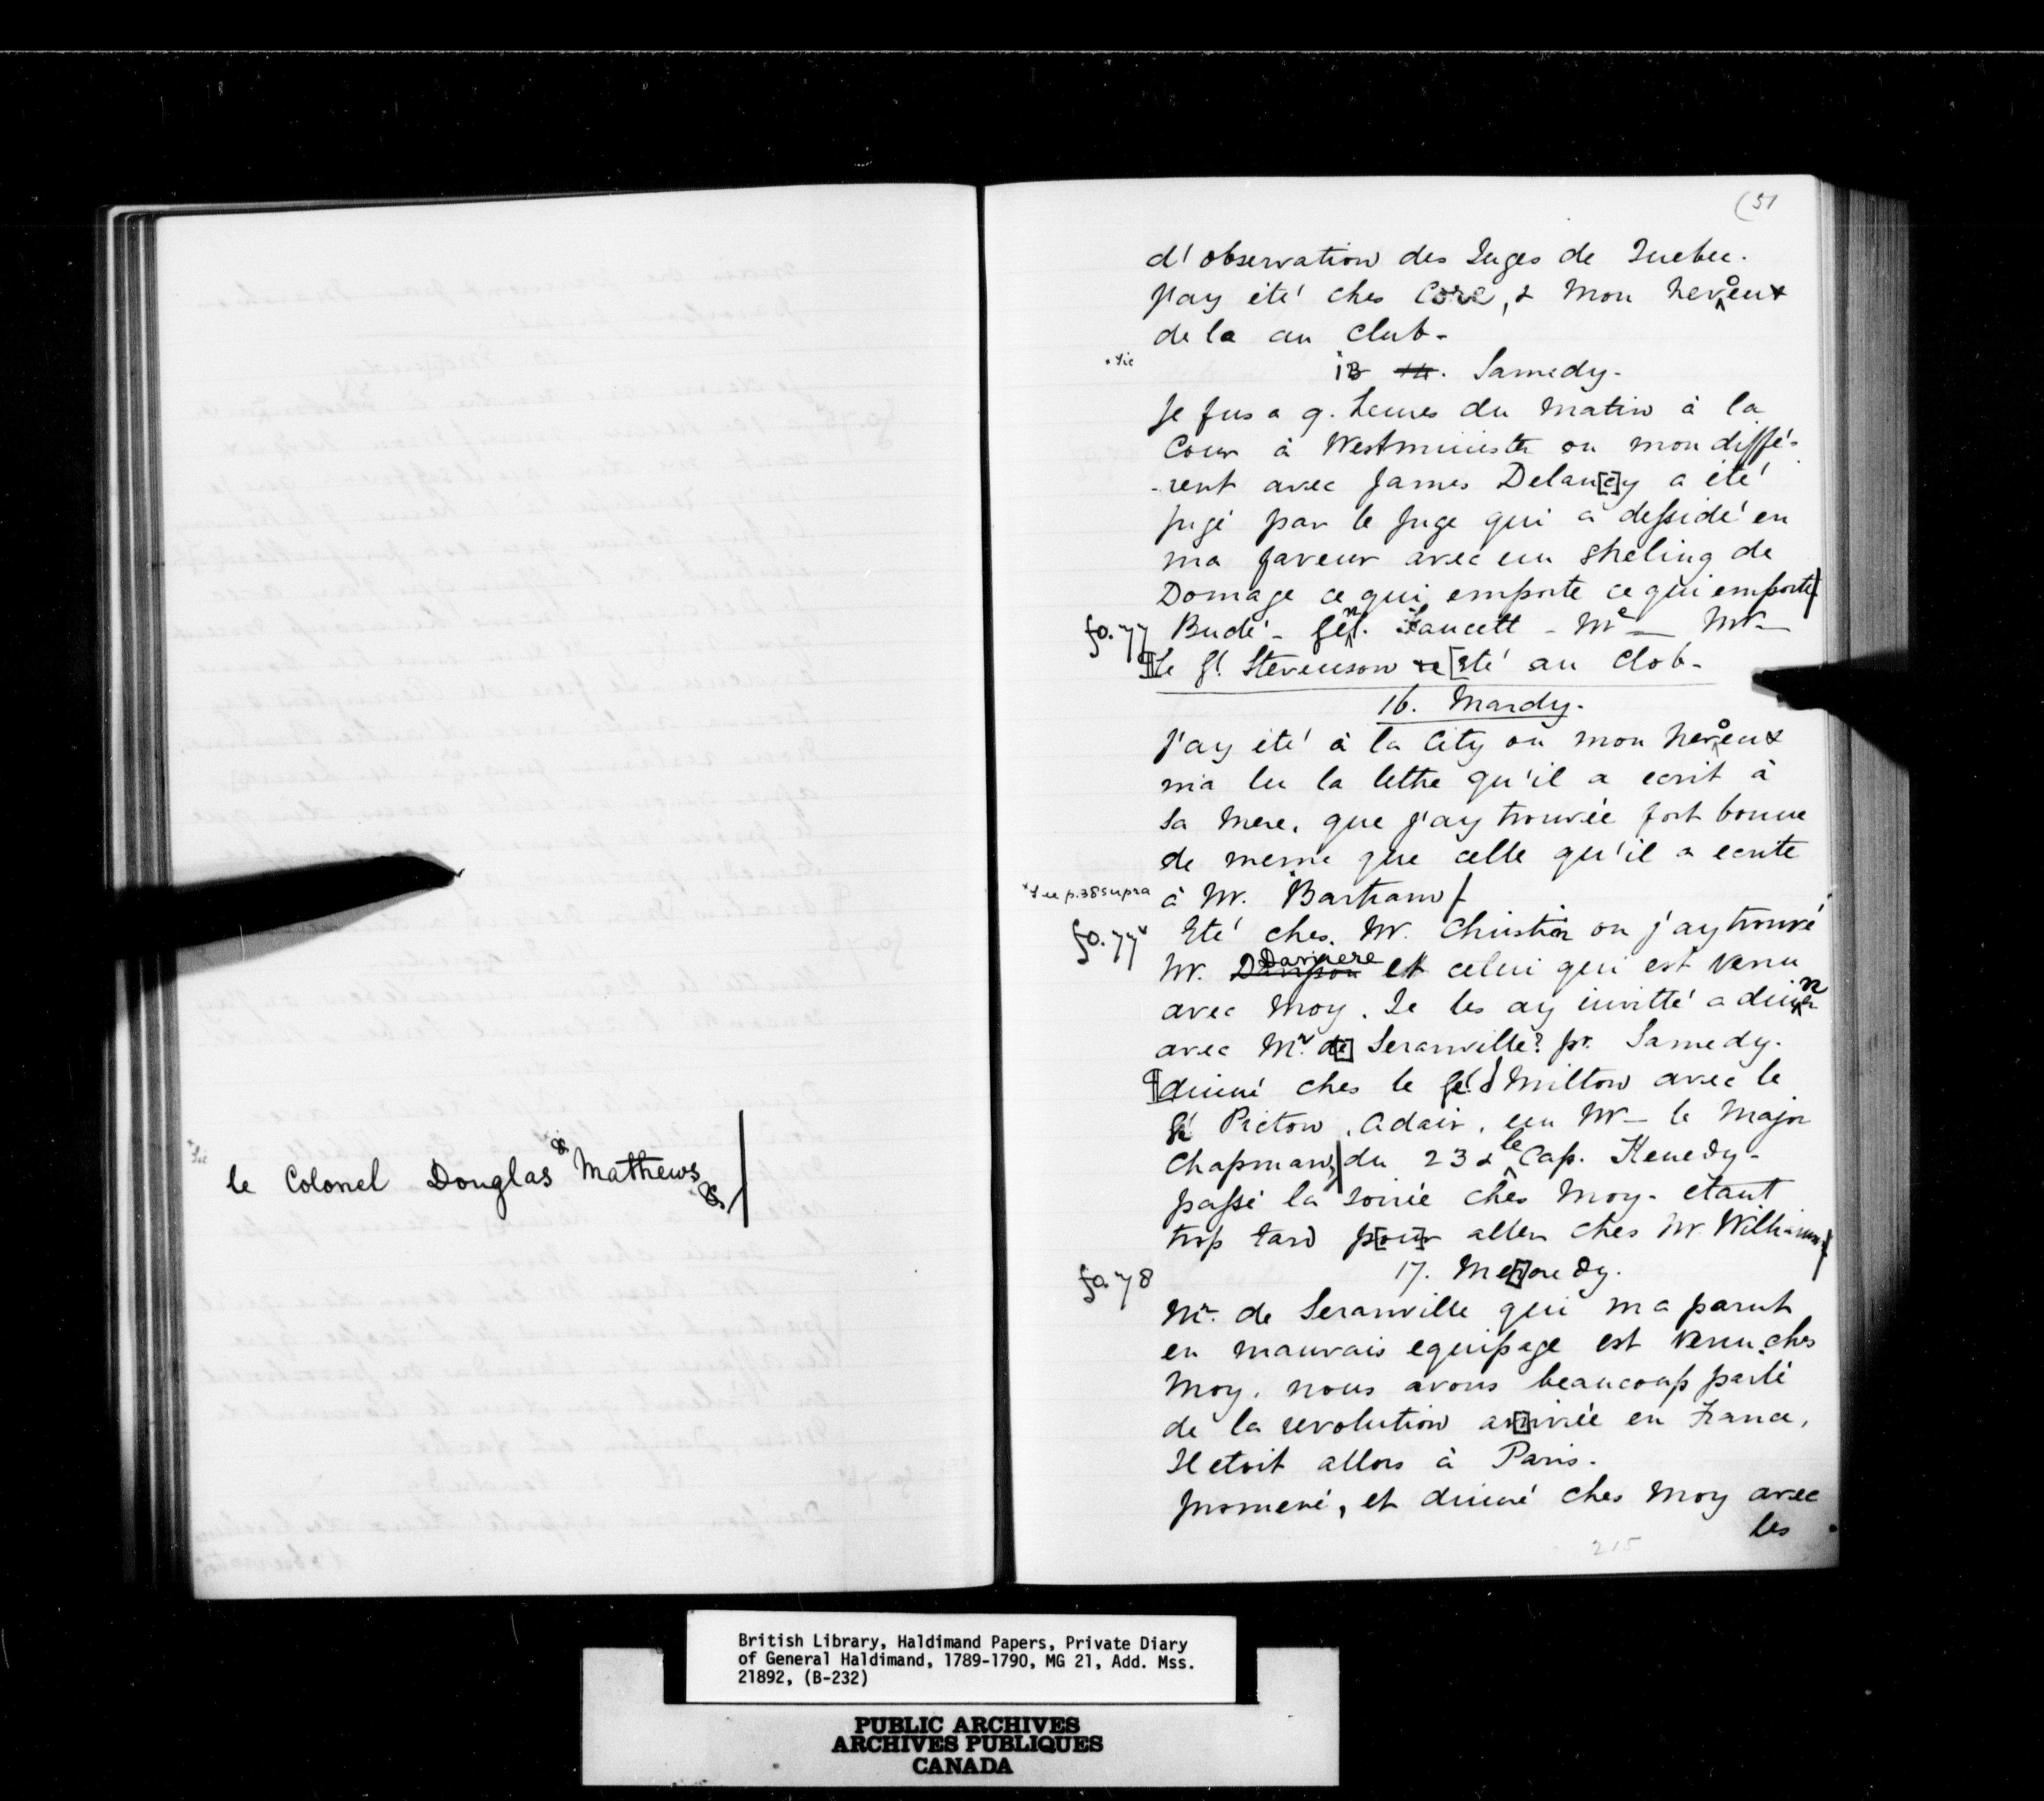 le Colonel Douglas & Mathews &/
(51
d'observation des Juges de Quebec.
j'ay été ches Core, & mon neveux
de la au Club-
* sic
13 14. Samedy-
Je fus a 9. heures du matin à la
Cour à Westminister ou mon diffé-
-rent avec James Delan[c]y a été
jugé par le Juge qui a dessidé en
ma faveur avec un sheling de
Domage ce qui emporte ce qui emporte/
fo. 77
Budé - Genl. Faucett - Mr — Mr —
Le Gl. Stevenson [eté au Clob-
16. Mardy-
J'ay été à la City où mon neveux
m'a lu la lettre qu'il a ecrit à
sa mere, que j'ay trouvée fort bonne
de meme que celle qu'il a ecrite
* See p. 38 supra
à Mr. Bartram/
fo. 77v
Eté ches Mr. Christin ou j'ay trouvé
Mr. Darjuere et celui qui est venu
avec moy. Je les ay invitté a diner
avec Mr. de Seranville? pr. Samedy.
dinné ches le Gel. Milton avec le
Gl Picton, Adair, un Mr — le Major
Chapman,/ du 23 & le Cap. Kenedy-
passé la soirée ches moy- etant
trop tard p[ou]r aller ches Mr. Williams/
fo. 78
17. Me[r]credy.
Mr. de Seranville qui m'a parut
en mauvais equipage est venu ches
moy. nous avons beaucoup parlé
de la revolution a[rr]ivée en France,
Il etoit allors à Paris.
promené, et dinné ches moy avec
les
215
British Library, Haldimand Papers, Private Diary
of General Haldimand, 1789-1790, MG 21, Add. Mss.
21892, (B-232)
PUBLIC ARCHIVES
ARCHIVES PUBLIQUES
CANADA